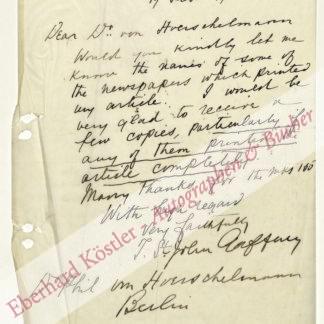 Dear Dr. von Hoerschelmann
Would you kindly let me
know the names of some of
the newspapers which printed
my article. I would be
very glad to receive a
few copies, particularly if
any of them printed the
article completely.
Many thanks for the mss too
With high regard
Very faithfully
T. St. John Gaffney
Dr Phil von Hoerschelmann
Berlin
Eberhard Köstler Autographen & Bücher